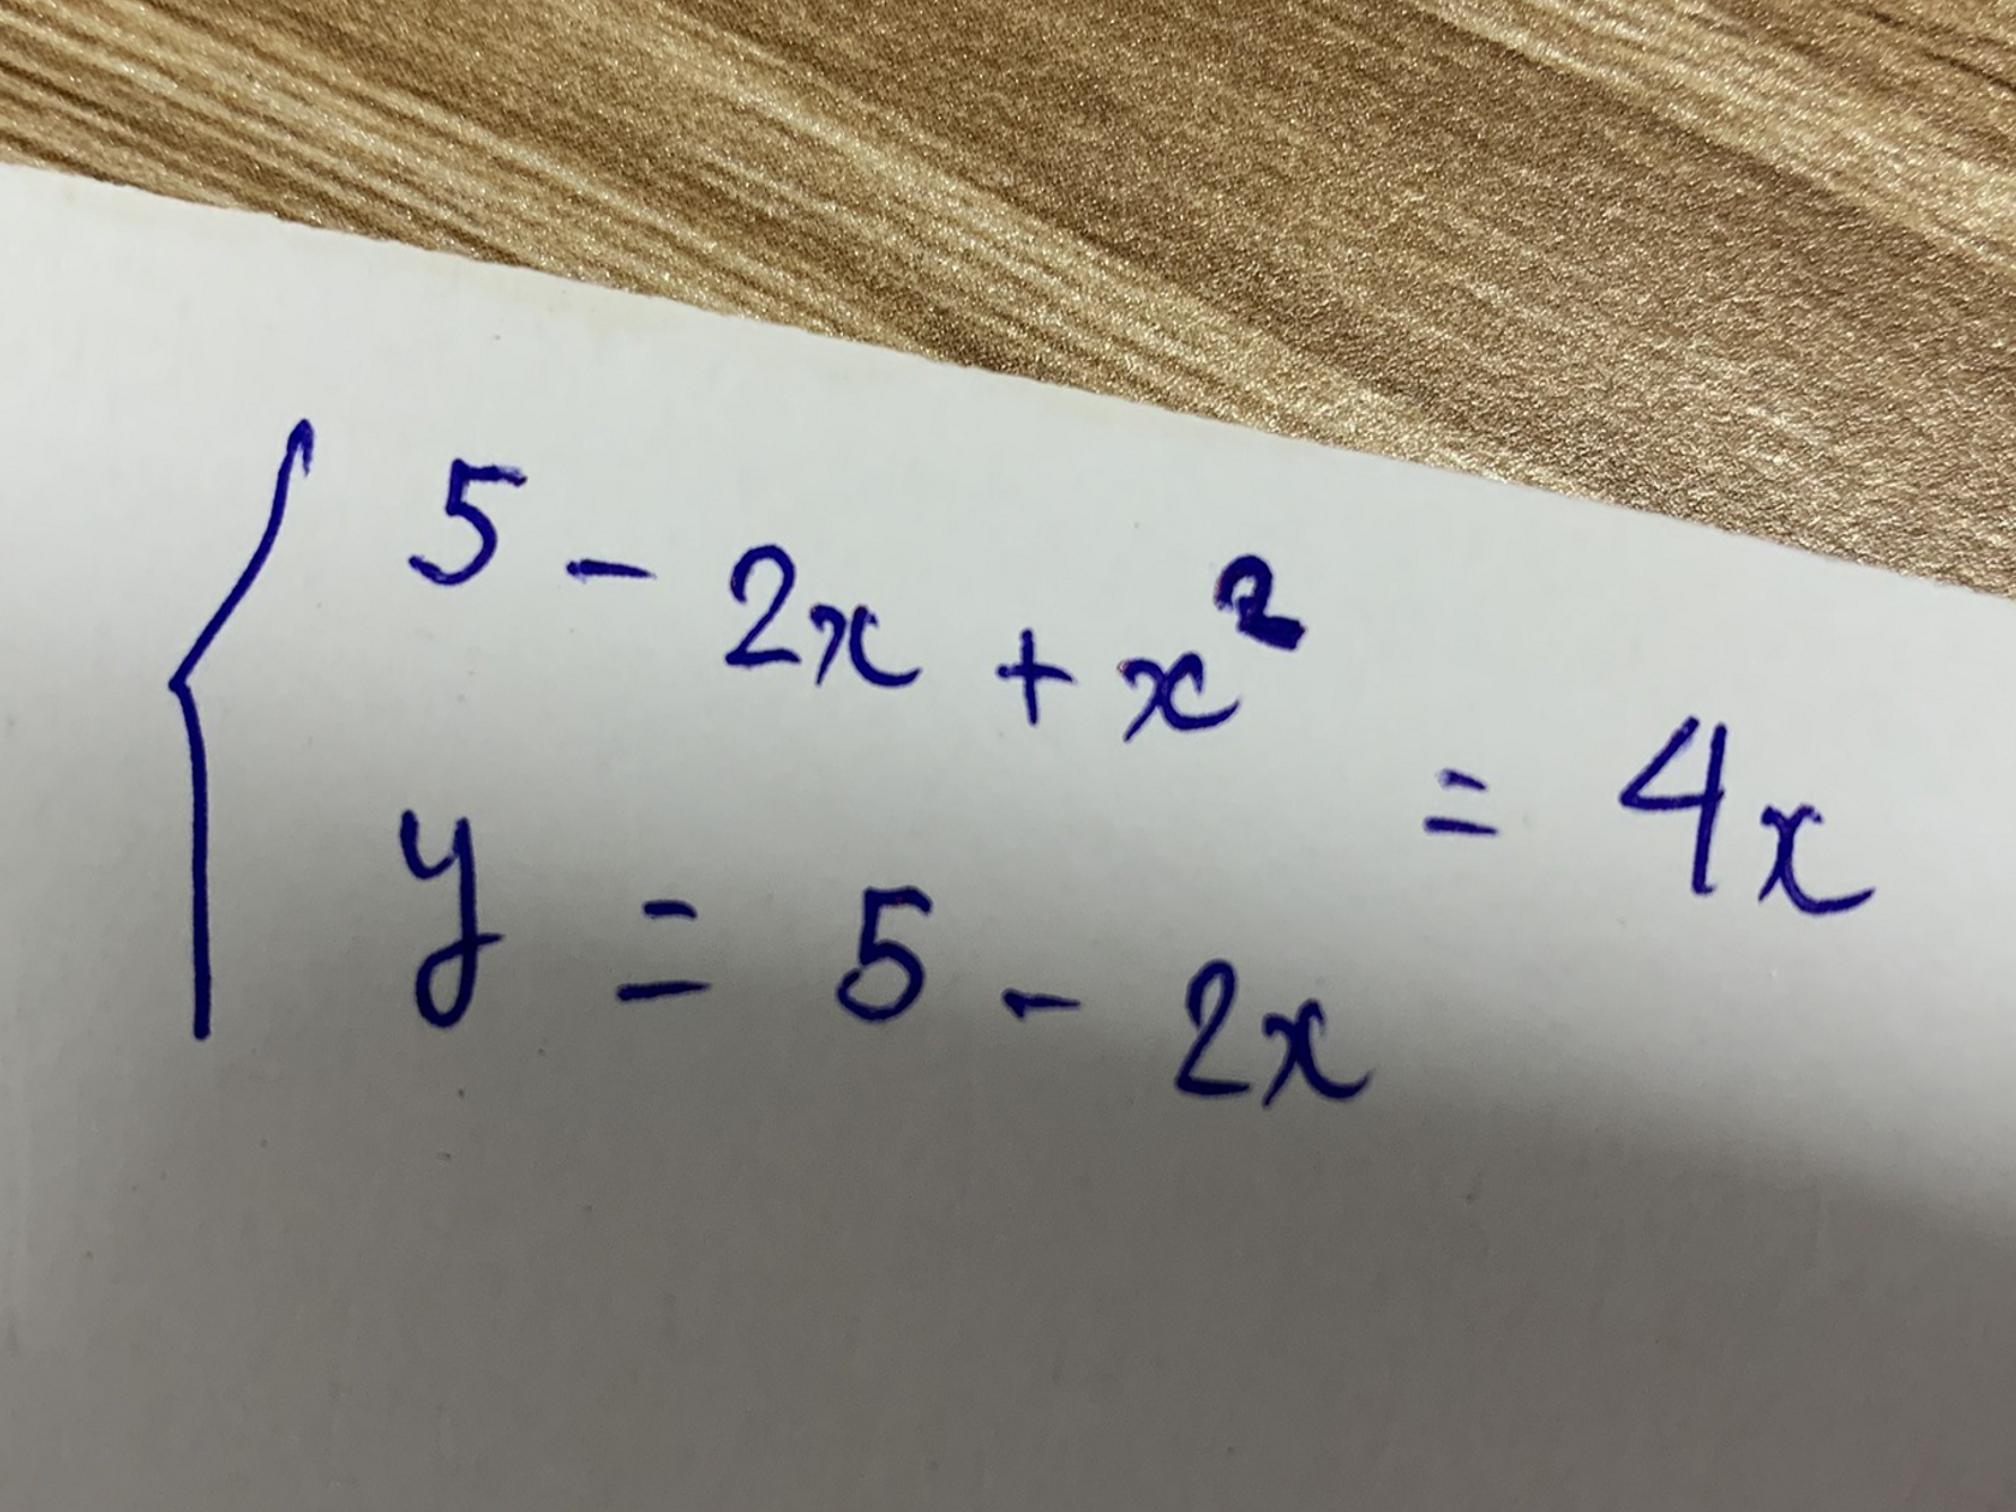 5 - 2x + x² = 4x
y = 5 - 2x